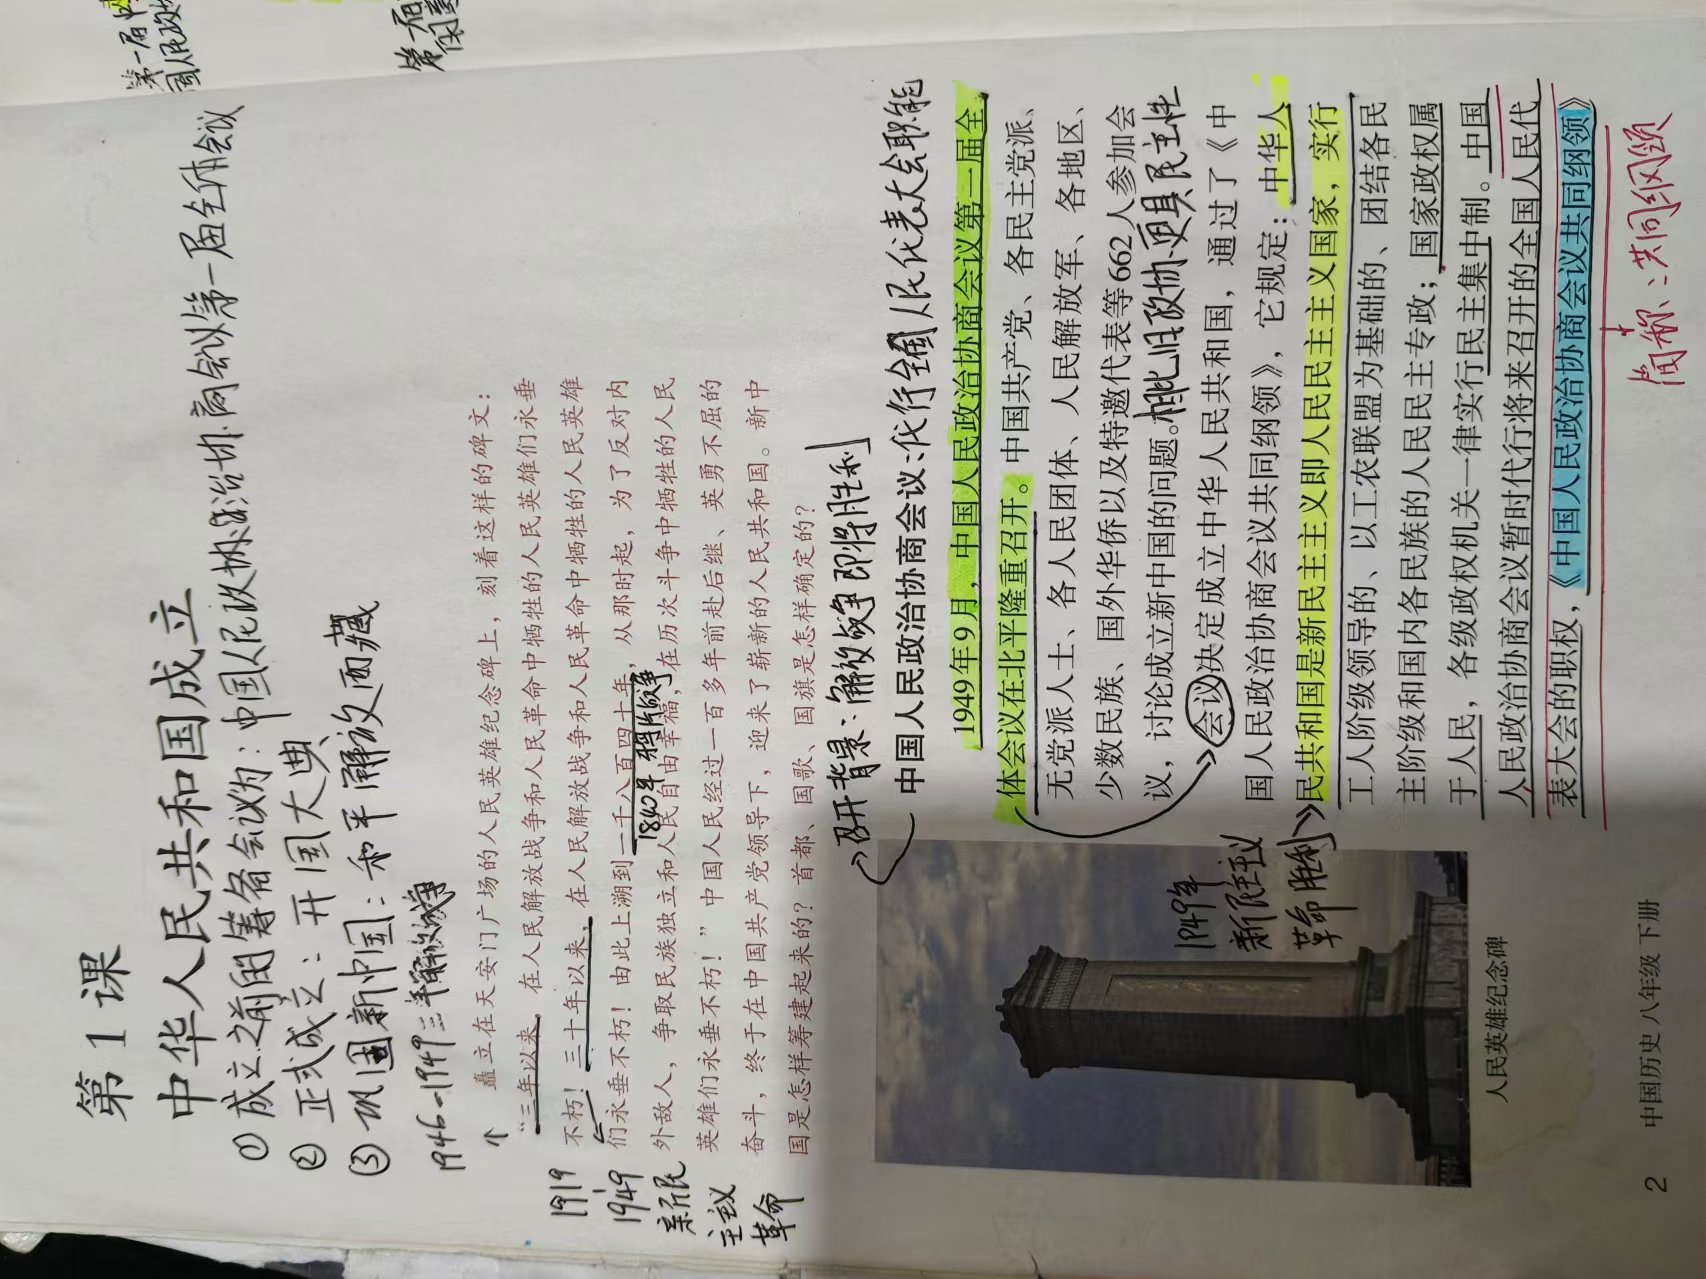 第1课
中华人民共和国成立
①成立之前的筹备会议为：中国人民政协政治协商会议第一届全体会议
②正式成立：开国大典
③巩固新中国：和平解放西藏
1946-1949 三年解放战争
矗立在天安门广场的人民英雄纪念碑上，刻着这样的碑文：
“三年以来，在人民解放战争和人民革命中牺牲的人民英雄们永垂
不朽！三十年以来，在人民解放战争和人民革命中牺牲的人民英雄
们永垂不朽！由此上溯到一千八百四十年，从那时起，为了反对内
1840年鸦片战争
外敌人，争取民族独立和人民自由幸福，在历次斗争中牺牲的人民
英雄们永垂不朽！”中国人民经过一百多年前赴后继、英勇不屈的
奋斗，终于在中国共产党领导下，迎来了崭新的人民共和国。新中
国是怎样筹建起来的？首都、国歌、国旗是怎样确定的？
1919
1949
新民
主主义
革命
召开背景：解放战争即将胜利
中国人民政治协商会议：代行全国人民代表大会职能
1949年9月，中国人民政治协商会议第一届全
体会议在北平隆重召开。中国共产党、各民主党派、
无党派人士、各人民团体、人民解放军、各地区、
少数民族、国外华侨以及特邀代表等662人参加会
议，讨论成立新中国的问题。相比旧政协更具民主性
会议决定成立中华人民共和国，通过了《中
国人民政治协商会议共同纲领》，它规定：中华人
民共和国是新民主主义即人民民主主义国家，实行
工人阶级领导的、以工农联盟为基础的、团结各民
主阶级和国内各民族的人民民主专政；国家政权属
于人民，各级政权机关一律实行民主集中制。中国
人民政治协商会议暂时代行将来召开的全国人民代
表大会的职权，《中国人民政治协商会议共同纲领》
简称：共同纲领
1949年
新民主主义
革命胜利
人民英雄纪念碑
2 中国历史 八年级 下册